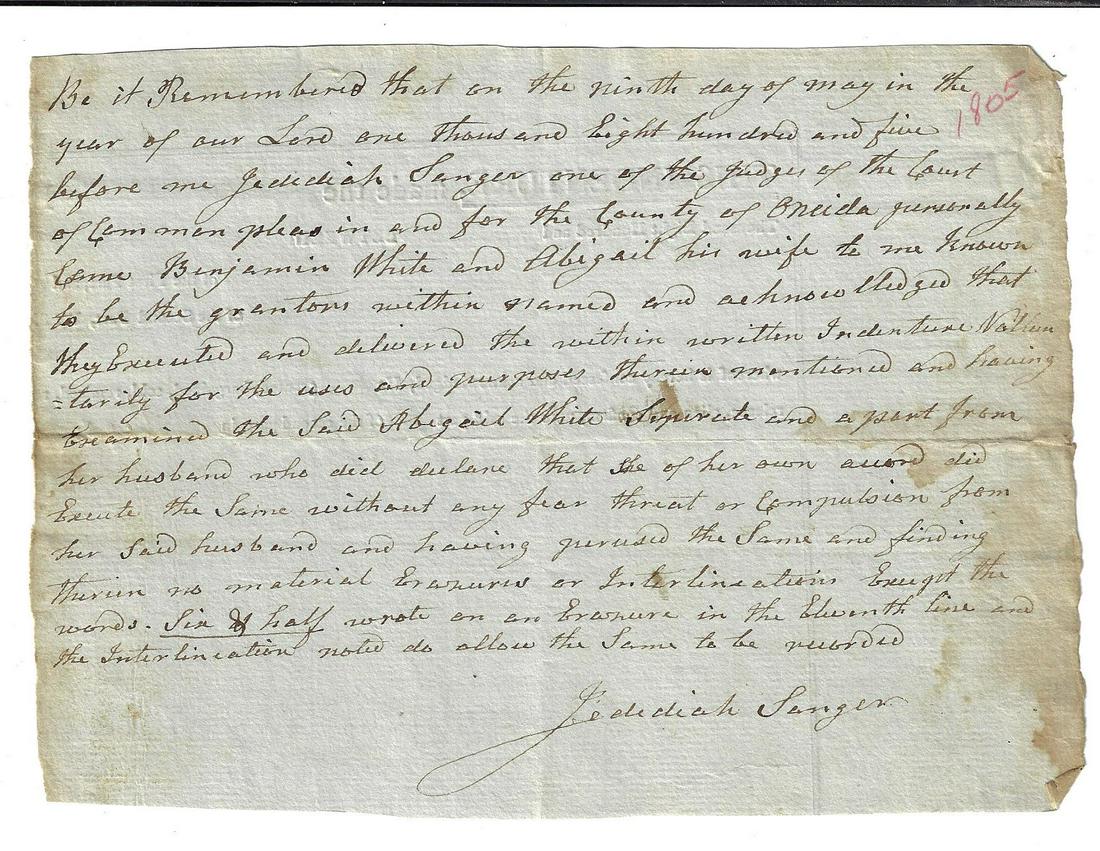 Be it Remembered that on the ninth day of may in the
1805
year of our Lord one thousand Eight hundred and five
before me Jedediah Sanger one of the Judges of the Court
of Common pleas in and for the County of Oneida personally
Came Benjamin White and Abigail his wife to me Known
to be the grantors within named and acknowlledged that
they Executed and delivered the within written Indenture Vollun
=tarily for the uses and purposes therein mentioned and having
Examined the Said Abigail White Seperate and a part from
her husband who did declare that she of her own accord did
Execute the Same without any fear threat or Compulsion from
her Said husband and having perused the Same and finding
therein no material Erazures or Interlineations Except the
words. Six & half wrote on an Erazure in the Eleventh line and
the Interlineation noted do allow the Same to be recorded
Jedediah Sanger